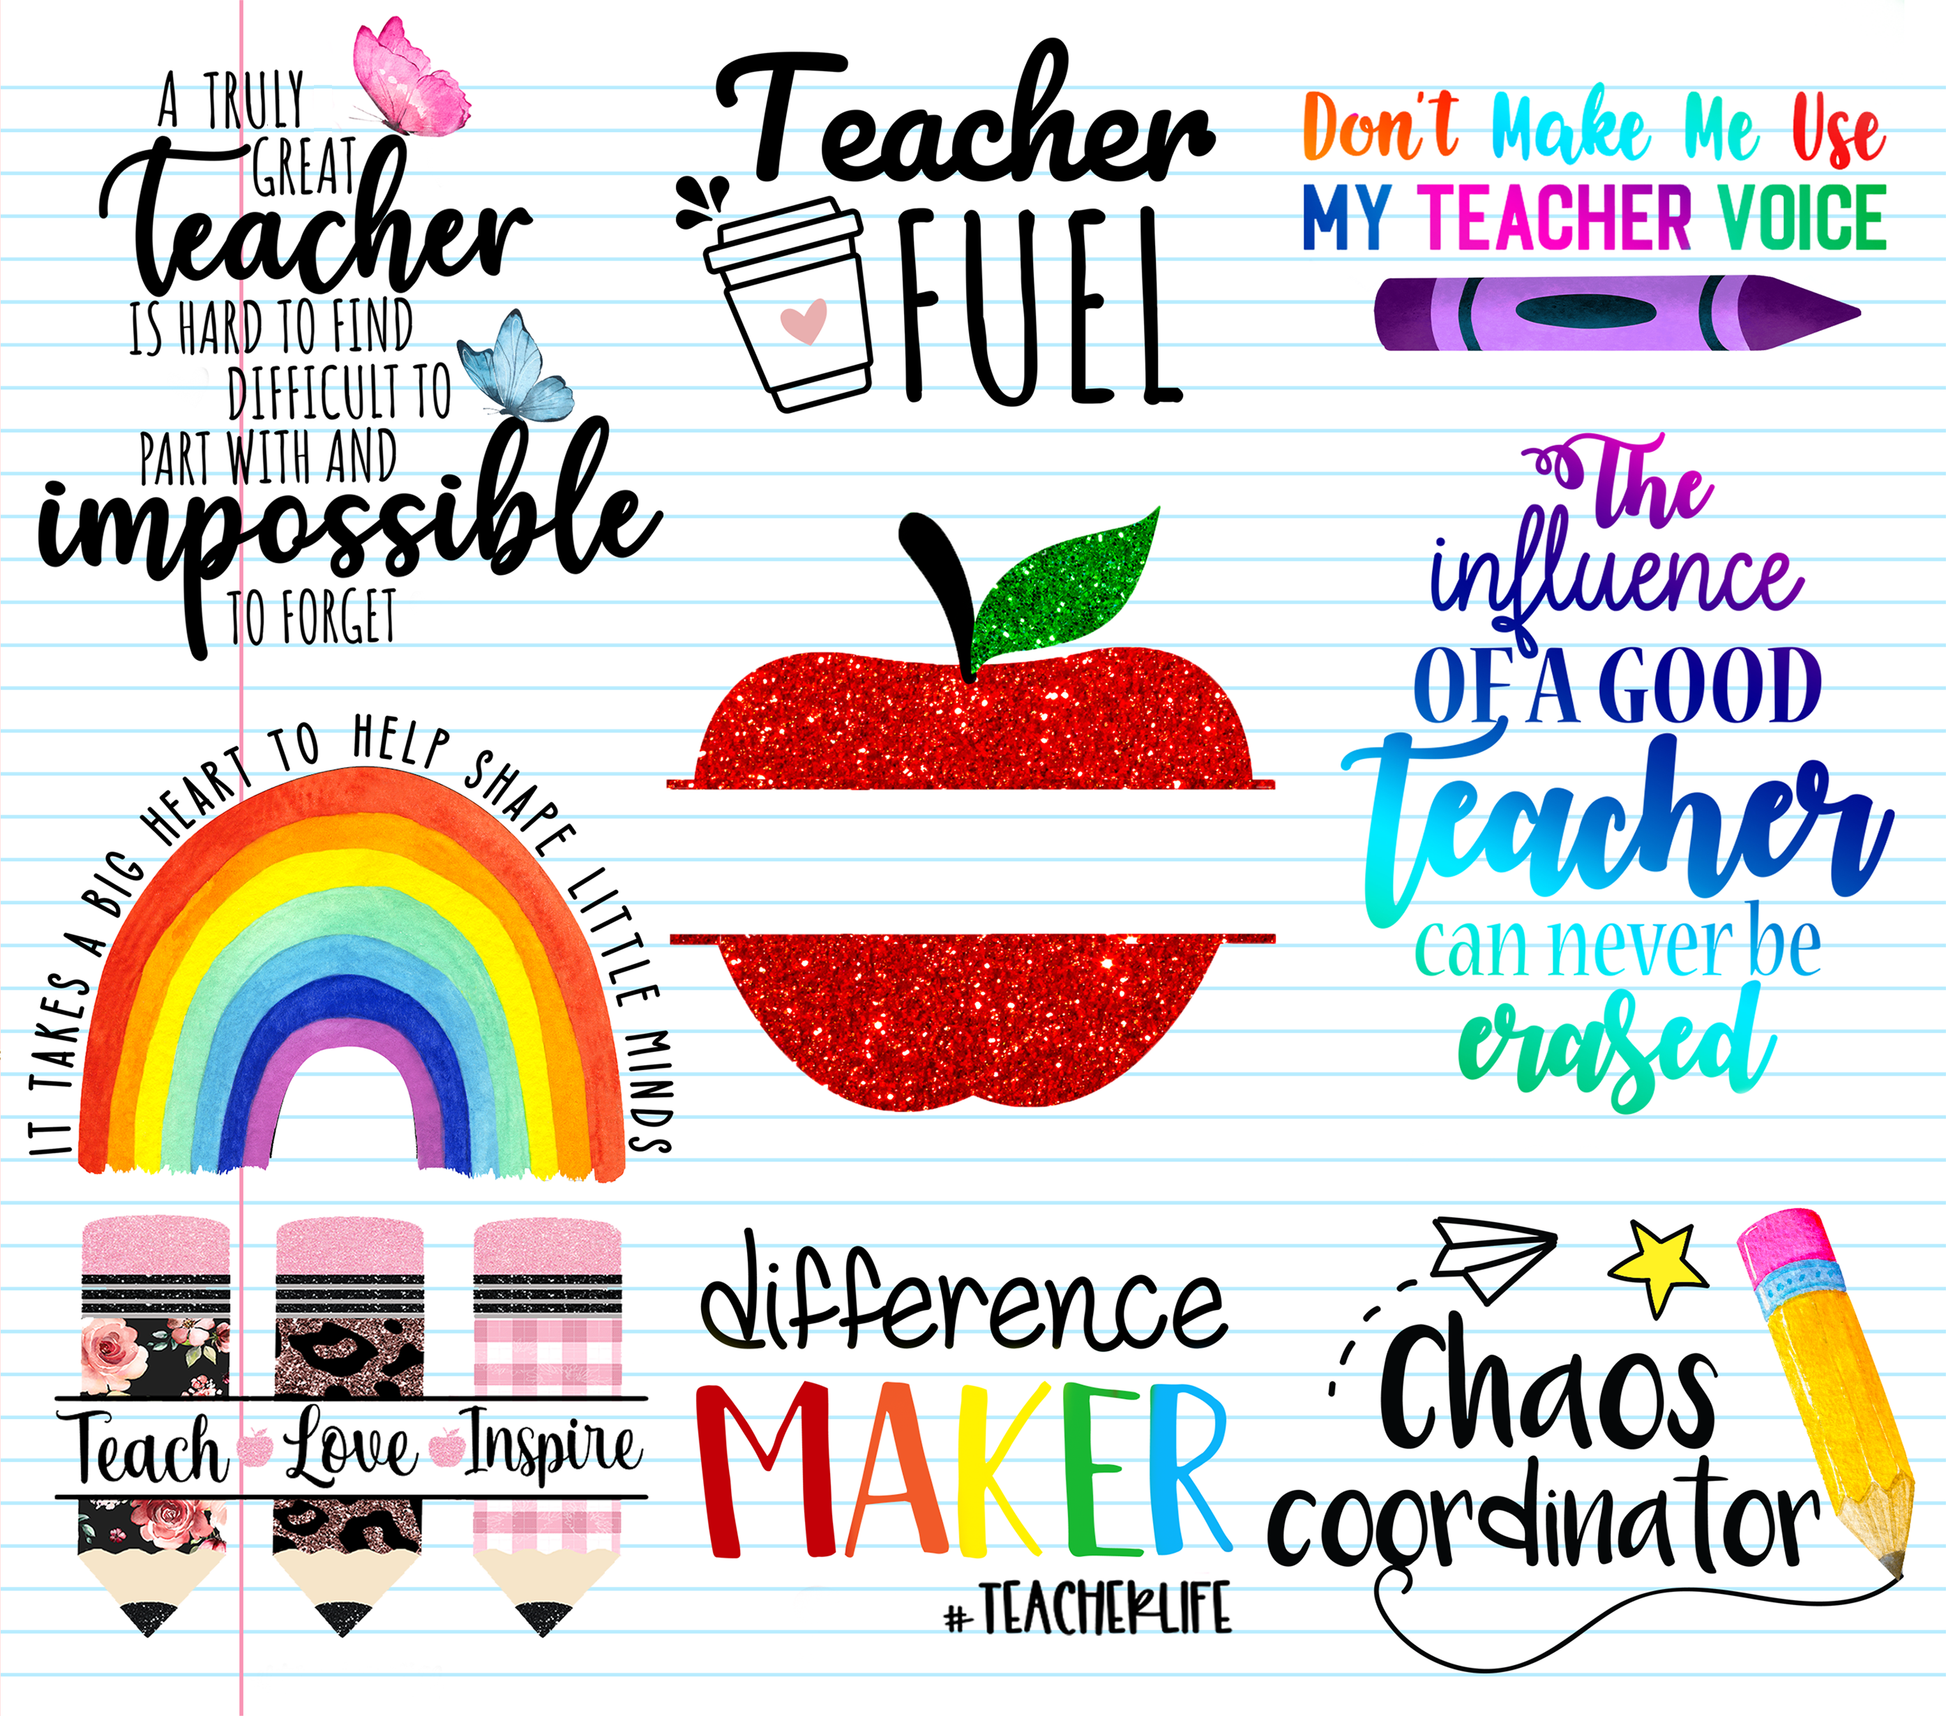 A TRULY
GREAT
teacher
IS HARD TO FIND
DIFFICULT TO
PART WITH AND
impossible
TO FORGET
Teacher
FUEL
Don't Make Me Use
MY TEACHER VOICE
The
influence
OF A GOOD
teacher
can never be
erased
IT TAKES A BIG HEART TO HELP SHAPE LITTLE MINDS
Teach Love Inspire
difference
MAKER
#TEACHERLIFE
Chaos
coordinator